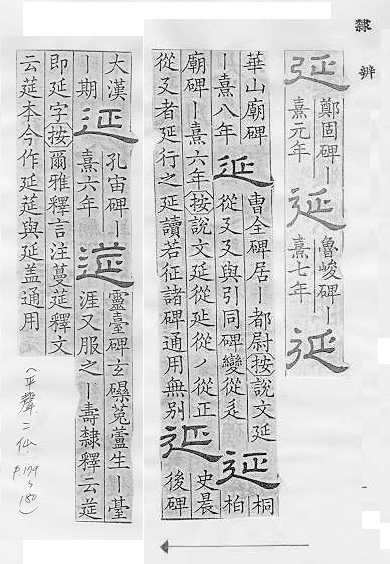 隸辨
延
鄭固碑丨
熹元年
延
魯峻碑丨
熹七年
延
華山廟碑
丨熹八年
延
曹全碑居丨都尉按說文延
從廴又與引同碑變從辵
延
桐
柏
廟碑丨熹六年按說文延從延從丿從正
從廴者延行之延讀若征諸碑通用無别
延
史晨
後碑
大漢
丨期
延
孔宙碑丨
熹六年
莚
靈臺碑玄磥菟蘆生丨臺
涯又服之丨壽隸釋云莚
即延字按爾雅釋言注蔓莚釋文
云莚本今作延莚與延盖通用
(平聲二仙 P.179 180)